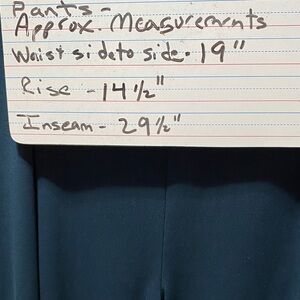 Pants -
Approx. Measurements
Waist side to side - 19"
Rise - 14 1/2"
Inseam - 29 1/2"